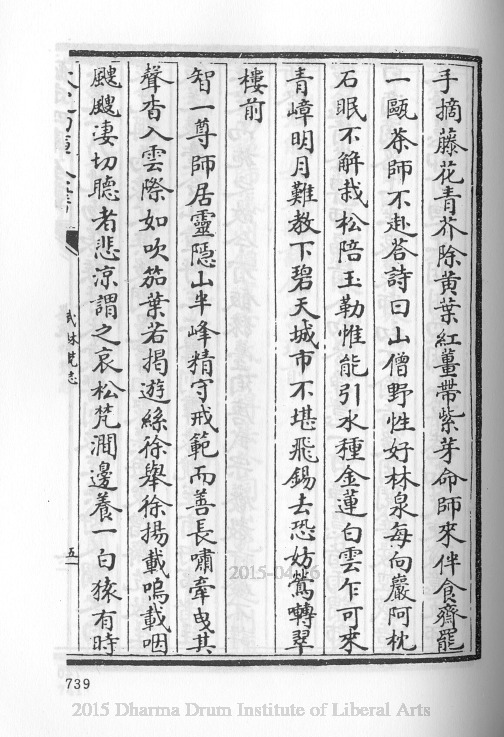 手摘藤花青芥除黄葉紅薑帶紫芽命師來伴食齋罷
一甌茶師不赴荅詩曰山僧野性好林泉每向巖阿枕
石眠不解栽松陪玉勒惟能引水種金蓮白雲乍可來
青嶂明月難教下碧天城市不堪飛錫去恐妨鶯囀翠
樓前
智一尊師居靈隱山半峰精守戒範而善長嘯牽曳其
聲杳入雲際如吹笳葉若揭遊絲徐舉徐揚載嗚載咽
颼颼淒切聽者悲涼謂之哀松梵澗邊養一白猿有時
武林梵志
五
739
2015 Dharma Drum Institute of Liberal Arts